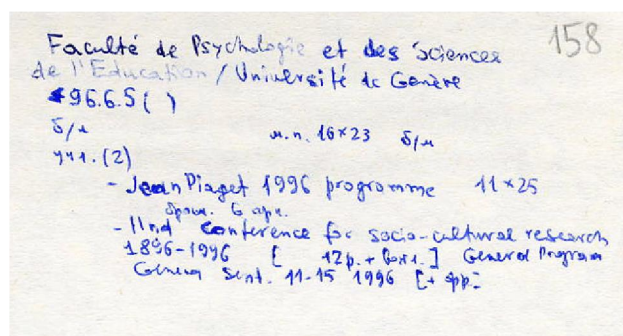 158
Faculté de Psychologie et des Sciences
de l'Education / Université de Genève
96.6.5 ( )
б/и м.п. 16×23 б/и
(2)
- Jean Piaget 1996 programme 11×25
- IInd Conference for socio-cultural research
1896-1996 [ 12p. + ] General Program
Geneva Sent. 11-15 1996 [+